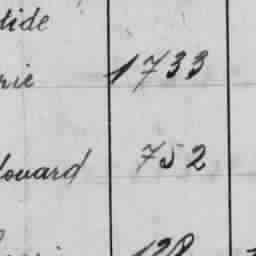 tide
rie 1733
douard 752
128